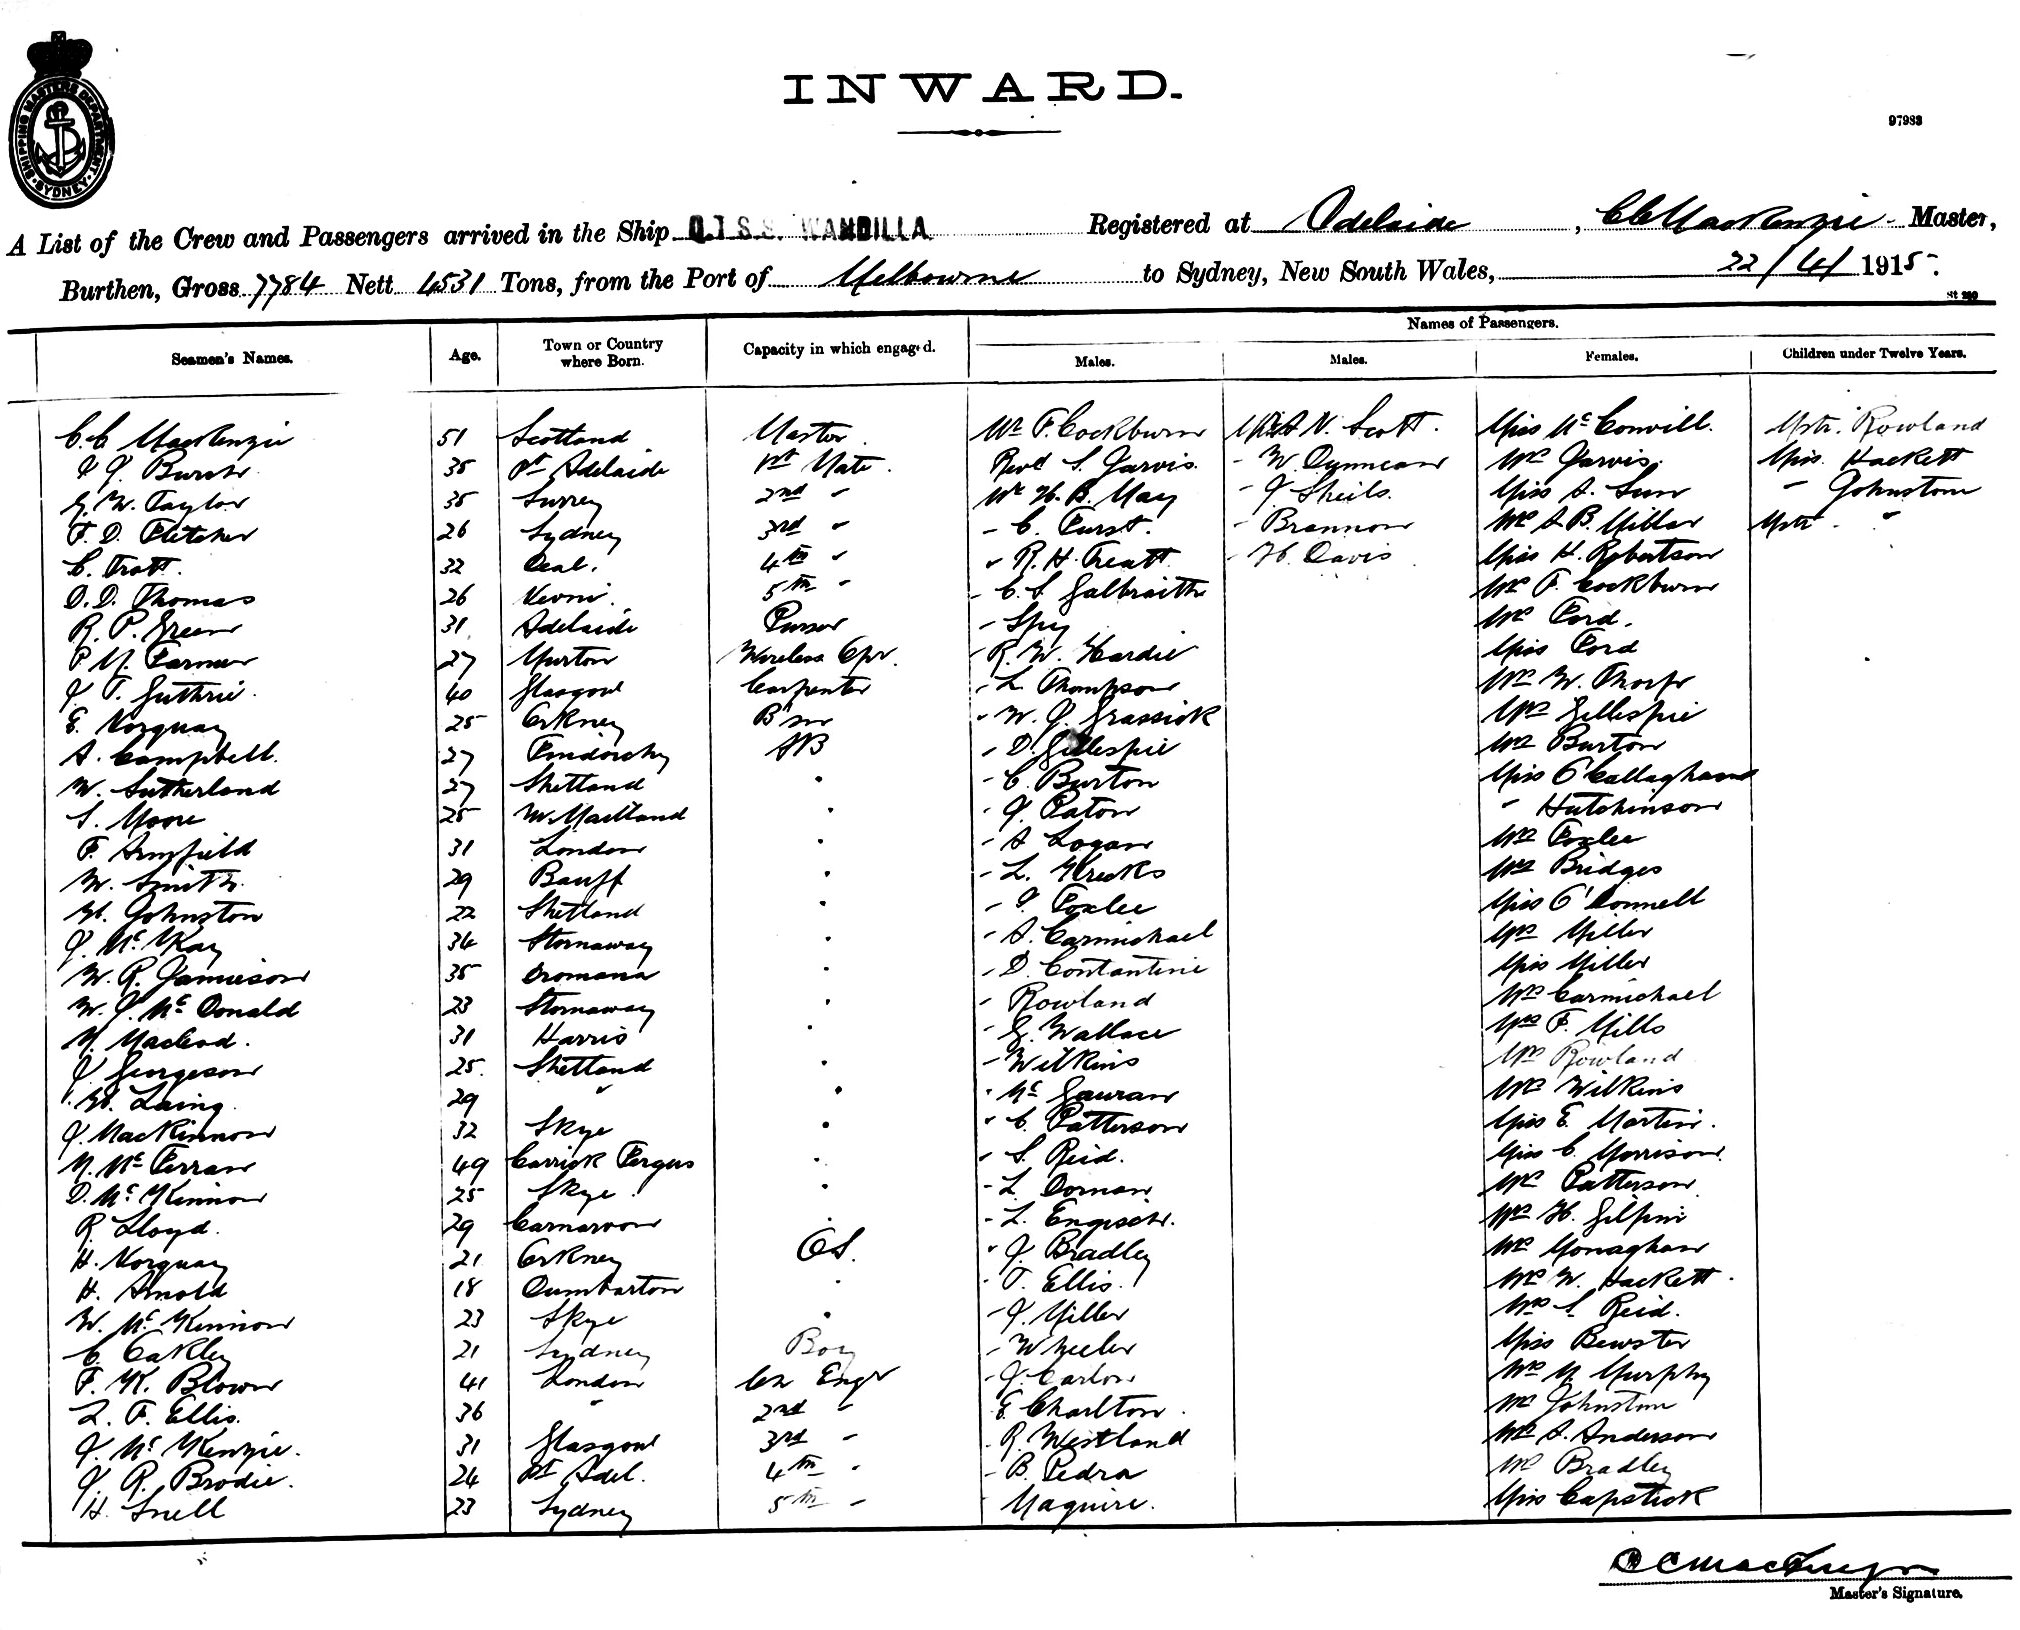 SHIPPING MASTERS DEPARTMENT · SYDNEY ·
INWARD.
97983
A List of the Crew and Passengers arrived in the Ship Q.T.S.S. WANDILLA Registered at Adelaide, C C MacKenzie Master,
Burthen, Gross 7784 Nett 4531 Tons, from the Port of Melbourne to Sydney, New South Wales, 22/4/1915.
St 299
Names of Passengers.
Seamen's Names. Age. Town or Country where Born. Capacity in which engaged. Males. Males. Females. Children under Twelve Years.
C. C MacKenzie 51 Scotland Master Mr F. Cockburn N. Scott. Miss McConvill. Mstr. Rowland
35 Pt Adelaide 1st Mate Revd S. Jarvis. - W. Mrs Jarvis. Miss. Hackett
G. W. Taylor 35 Surrey 2nd " Mr H. B. May - J Sheils. Miss A. " Johnston
F. D. Fletcher 26 Sydney 3rd " - C. Furst. - Brannon Mrs A B. Millar Mstr. "
C. Trott. 32 Deal. 4th " " R. H. Treatt - H. Davis Miss H. Robertson
D. D. Thomas 26 5th " - C. S. Galbraith Mrs F. Cockburn
R. P. Green 31 Adelaide Purser - Spry Mrs Ford.
P M. Farmer 27 Murton Wireless Opr. - R. W. Hardie Miss Ford
J. T. Guthrie. 40 Glasgow Carpenter - L Thompson Mrs W. Thorpe
E. Norquay 25 Orkney B'sn - W. J. Grassick Mrs Gillespie
A. Campbell. 27 AB - D. Gillespie Mrs Burton
W. Sutherland 27 Shetland " - C. Burton Miss O'Callaghan
S. Moore 25 W. Maitland " - J. Paton " Hutchinson
F. Armfield 31 London " - A Logan Mrs Foxlee
W. Smith. 29 Banff " - L. Mrs Bridges
W. Johnston 22 Shetland " - J Foxlee Miss O'Donnell
J. McKay 34 Stornaway " - A. Carmichael Mrs Miller
W. R. Jamieson 35 Dromana " - D. Contantine Miss Miller
W. J. McDonald 23 Stornaway " - Rowland Mrs Carmichael
M. Macleod. 31 Harris " - G. Wallace Mrs F. Mills
J Georgeson 25. Shetland " - Wilkins Mrs Rowland
W. Laing. 29 " " " McGauran Mrs Wilkins
J. MacKinnon 32 Skye " " C. Patterson Miss E. Martin.
N. McFerran 49 Carrick Fergus " - S. Reid. Miss C Morrison.
D. McKinnon 25 Skye " - L. Dornan Mrs Patterson
R. Lloyd. 29 Carnarvon " - L. Mrs H. Gilpin
H. Norquay 21 Orkney OS. " J Bradley Mrs Monaghan
H. Arnold 18 Dumbarton " - T. Ellis. Mrs W. Hackett.
W. McKinnon 23 Skye " - J. Miller Mrs S. Reid.
C. Oakley 21 Sydney Boy - Wheeler Miss Bewster
F. K. Blown 41 London Ch Engr - J. Carlon Mrs M. Murphy
L. F. Ellis. 36 " 2nd " E. Charlton. Mrs Johnston
J. McKenzie. 31 Glasgow 3rd " - R. Westland Mrs A. Anderson
J. R. Brodie. 24 Pt Adel. 4th " - B. Pedra Mrs Bradley
H. Snell 23 Sydney 5th " Maguire. Miss Capstick
C C MacKenzie
Master's Signature.